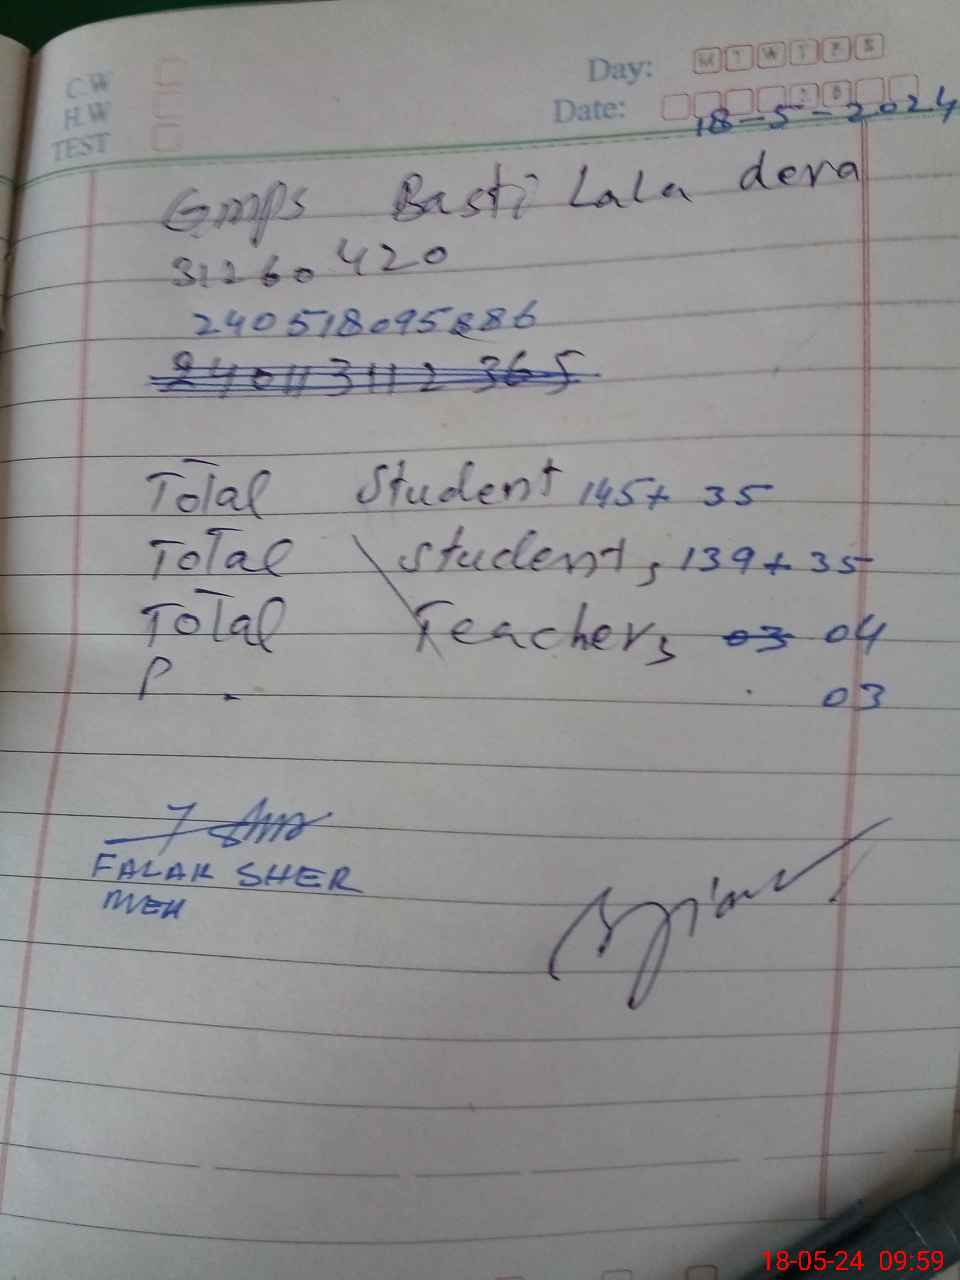 C.W
H.W
TEST
Day: M T W T F S
Date: 18-5-2024
Gmps Basti Lala dera
31260420
240518095886
240113112365
Total Student 145+ 35
Total Students 139+35
Total Teachers 03 04
P. 03
FALAK SHER
MEH
18-05-24 09:59